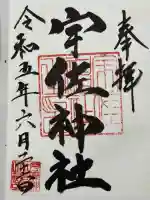 奉拝
宇佐神社
令和五年六月二十四日